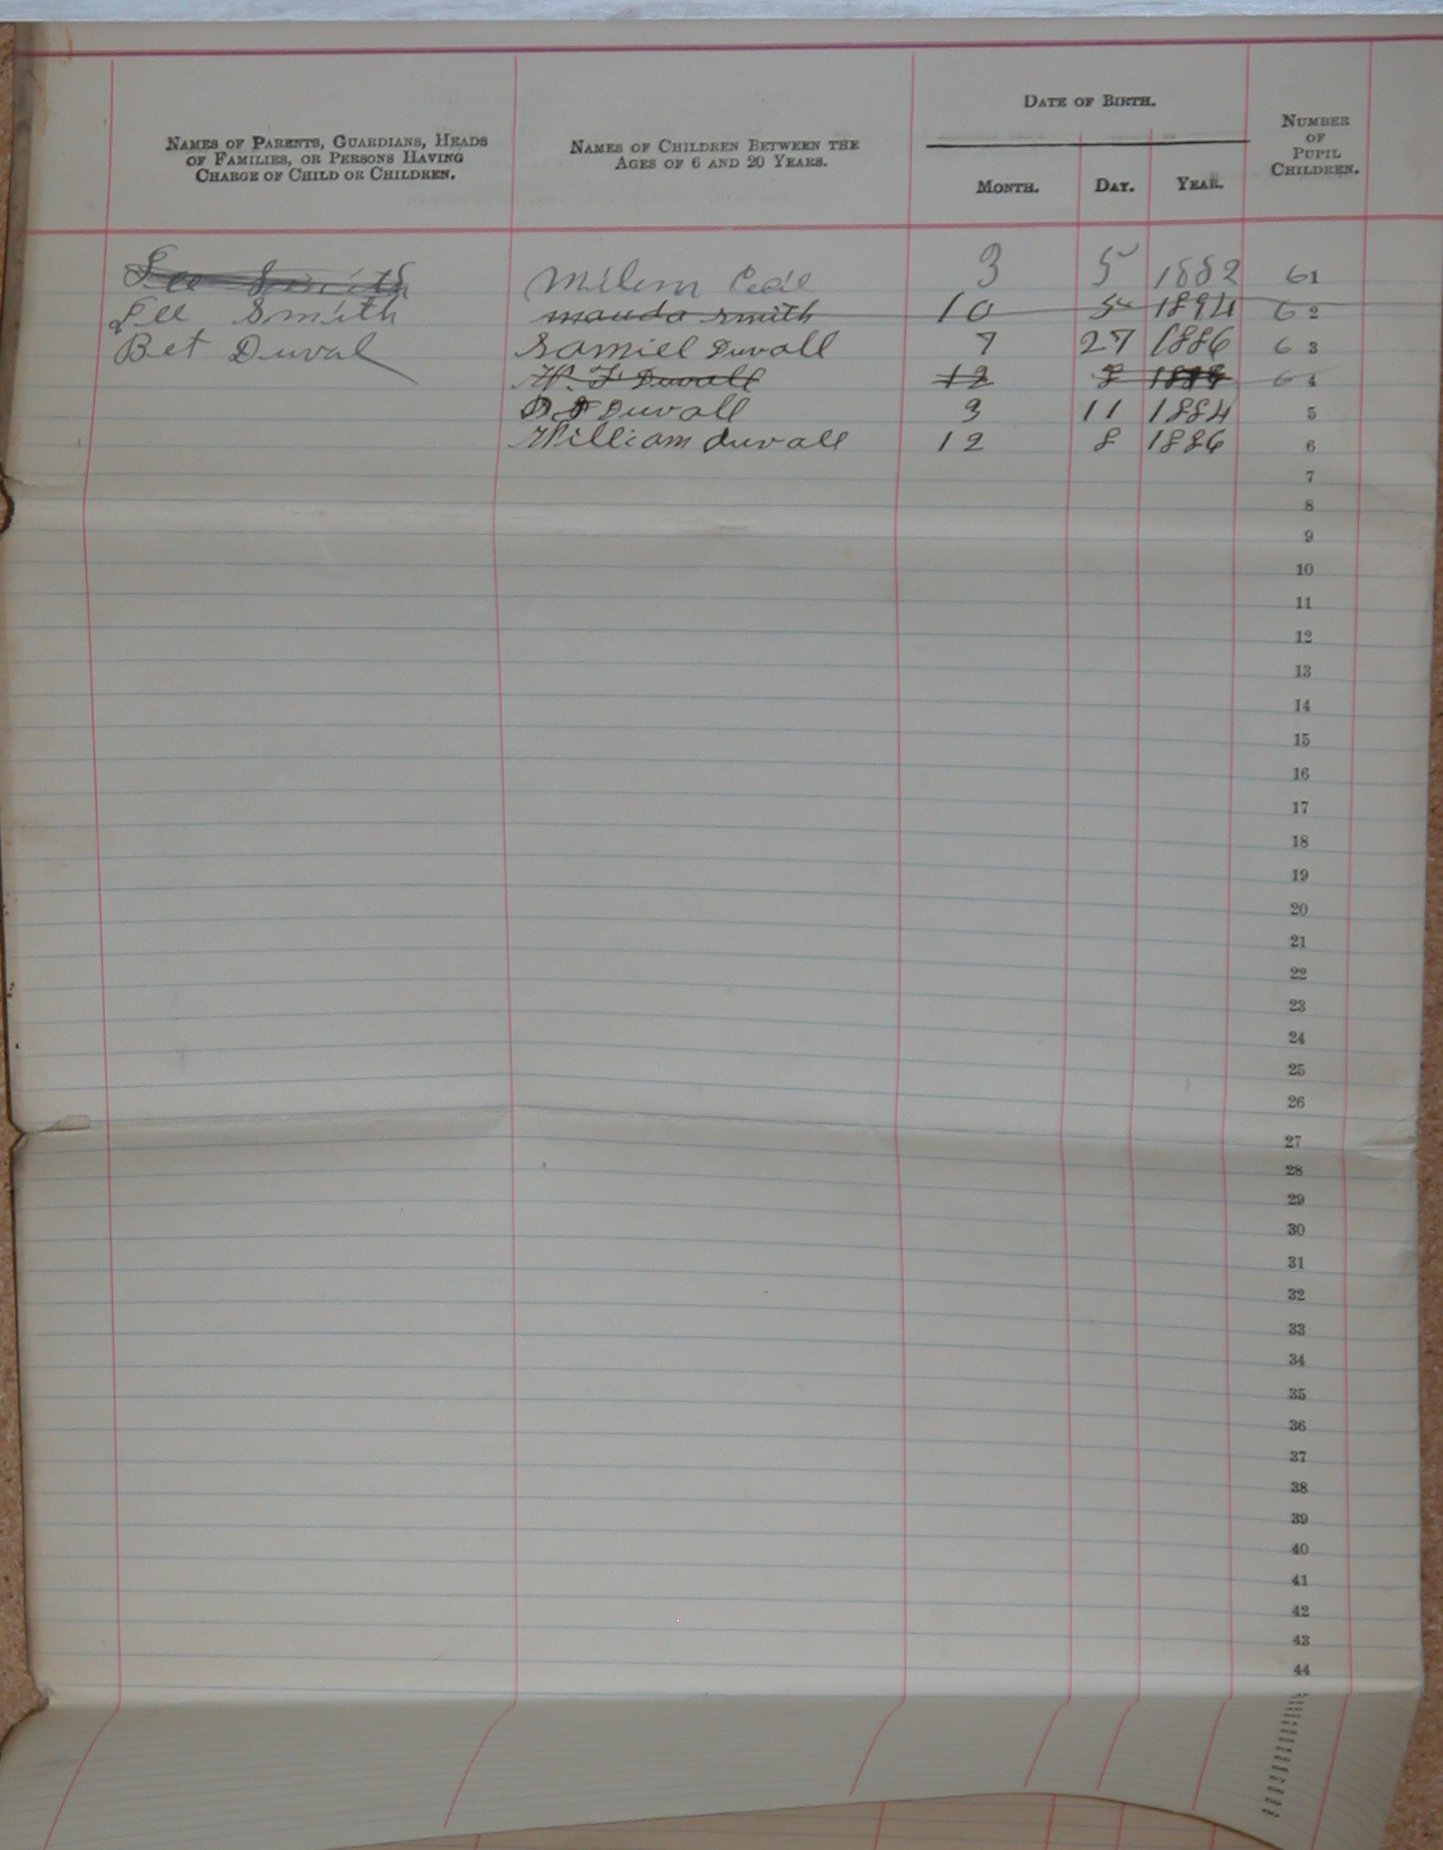 DATE OF BIRTH.
NAMES OF PARENTS, GUARDIANS, HEADS
OF FAMILIES, OR PERSONS HAVING
CHARGE OF CHILD OR CHILDREN.
NAMES OF CHILDREN BETWEEN THE
AGES OF 6 AND 20 YEARS.
MONTH. DAY. YEAR.
NUMBER
OF
PUPIL
CHILDREN.
Lee Smith Milem 3 5 1882 61
Lee Smith mauda smith 10 5 1894 6 2
Bet Duval Samiel Duvall 7 27 1886 6 3
W. F Duvall 12 8 6 4
Duvall 3 11 1884 5
William duvall 12 8 1886 6
7
8
9
10
11
12
13
14
15
16
17
18
19
20
21
22
23
24
25
26
27
28
29
30
31
32
33
34
35
36
37
38
39
40
41
42
43
44